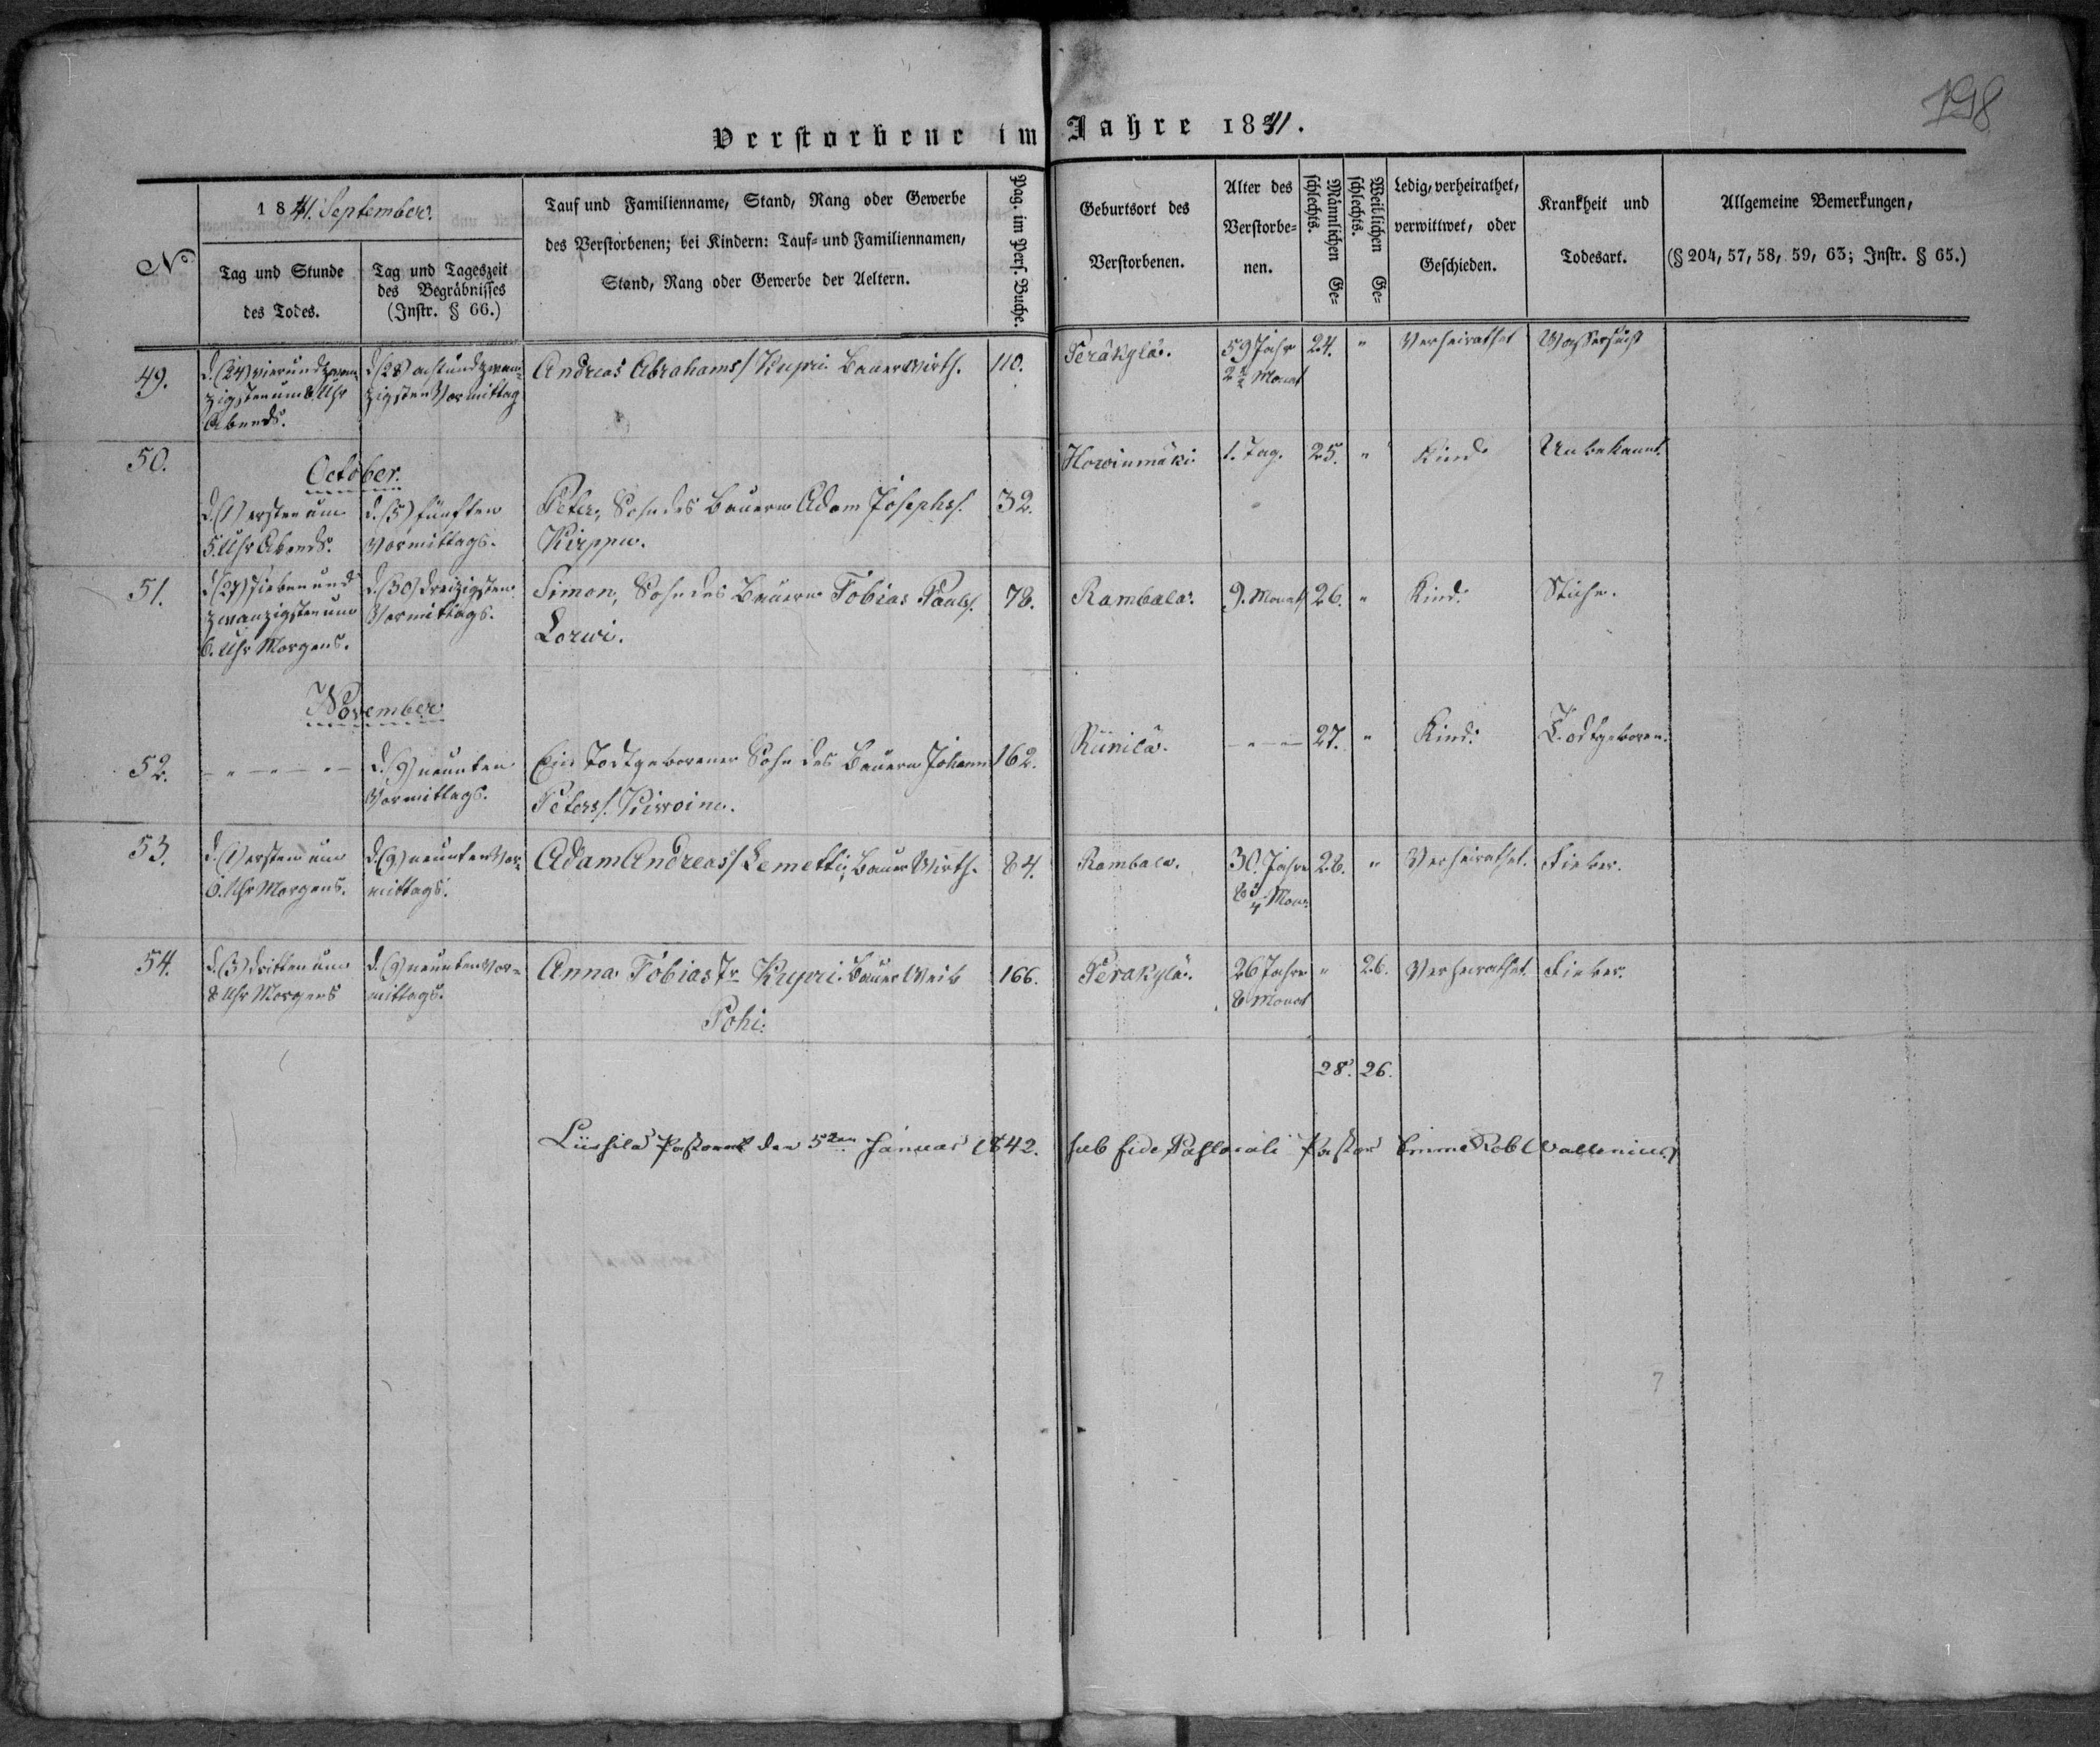 198
Verstorbene im Jahre 1841.
No
1841. September.
Tag und Stunde
des Todes.
Tag und Tageszeit
des Begräbnisses
(Instr. § 66.)
Tauf und Familienname, Stand, Rang oder Gewerbe
des Verstorbenen; bei Kindern: Tauf- und Familiennamen,
Stand, Rang oder Gewerbe der Aeltern.
Pag. im Pers. Buche.
Geburtsort des
Verstorbenen.
Alter des
Verstorbe-
nen.
Männlichen Ge-
schlechts.
Weiblichen Ge-
schlechts.
Ledig, verheirathet,
verwittwet, oder
Geschieden.
Krankheit und
Todesart.
Allgemeine Bemerkungen,
(§ 204, 57, 58, 59, 63; Instr. § 65.)
49.
d. (24) vierundzwan-
zigsten um 8 Uhr
Abends.
d. (28) achtundzwan-
zigsten Vormittag
Andreas Abrahams/ Kupri Bauer Wirth.
110.
Peräkylä.
59 Jahr
2½ Monat
24.
"
Verheirathet
Wassersucht
50.
October.
d. (1) ersten um
5. Uhr Abends.
d. (5) fünften
Vormittags.
Peter, Sohn des Bauern Adam Josephs/.
Kirppu.
32.
Horoinmäki
1. Tag.
25.
"
Kind
Unbekannt.
51.
d. (27) sieben und
zwanzigsten um
6. Uhr Morgens.
d. (30) dreizigsten
Vormittags.
Simon, Sohn des Bauern Tobias Pauls/.
Lorwi.
78.
Rambala.
9. Monat
26.
"
Kind.
Stiche.
November
52.
- " - " - " -
d. (9) neunten
Vormittags.
Ein todtgeborener Sohn des Bauern Johann
Peters/. Kiwoine.
162.
Riinilä.
- " -
27.
"
Kind.
Todtgeboren.
53.
d. (1) ersten um
6. Uhr Morgens.
d. (9) neunten Vor-
mittags.
Adam Andreas/ Lemetti, Bauer Wirth.
84.
Rambala.
30. Jahre
8¾ Mon.
28.
"
Verheirathet.
Fieber.
54.
d. (3) dritten um
8 Uhr Morgens
d. (9) neunten Vor-
mittags.
Anna Tobias Tr Kupri. Bauer Weib
Pohi.
166.
Peräkylä.
26 Jahre
8 Monat
"
26.
Verheirathet.
Fieber.
28. 26.
Liissilä Pastorat den 5ten Januar 1842. sub fide Pastorali Pastor Rob Wallenius
7